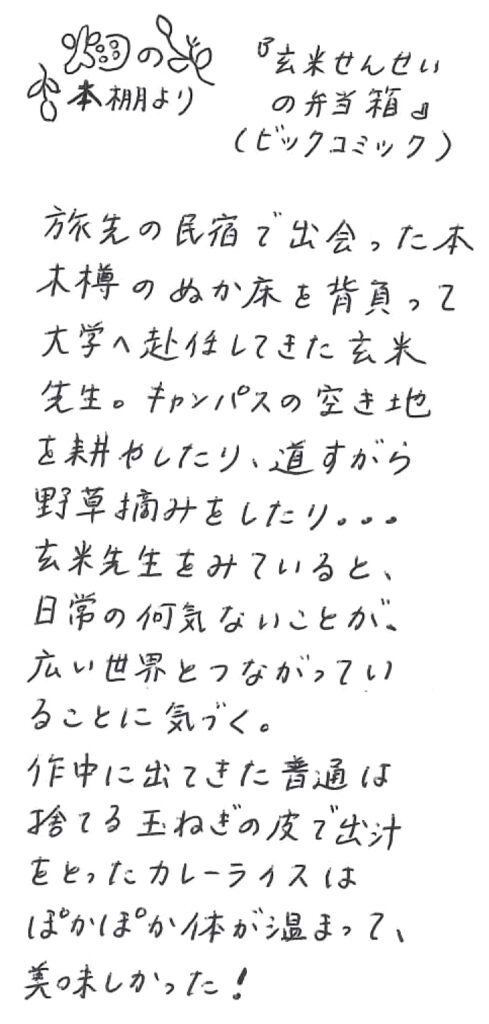 畑の
本棚より
『玄米せんせい
の弁当箱』
(ビックコミック)
旅先の民宿で出会った本
木樽のぬか床を背負って
大学へ赴任してきた玄米
先生。キャンパスの空き地
を耕やしたり、道すがら
野草摘みをしたり。。。
玄米先生をみていると、
日常の何気ないことが、
広い世界とつながってい
ることに気づく。
作中に出てきた普通は
捨てる玉ねぎの皮で出汁
をとったカレーライスは
ぽかぽか体が温まって、
美味しかった!